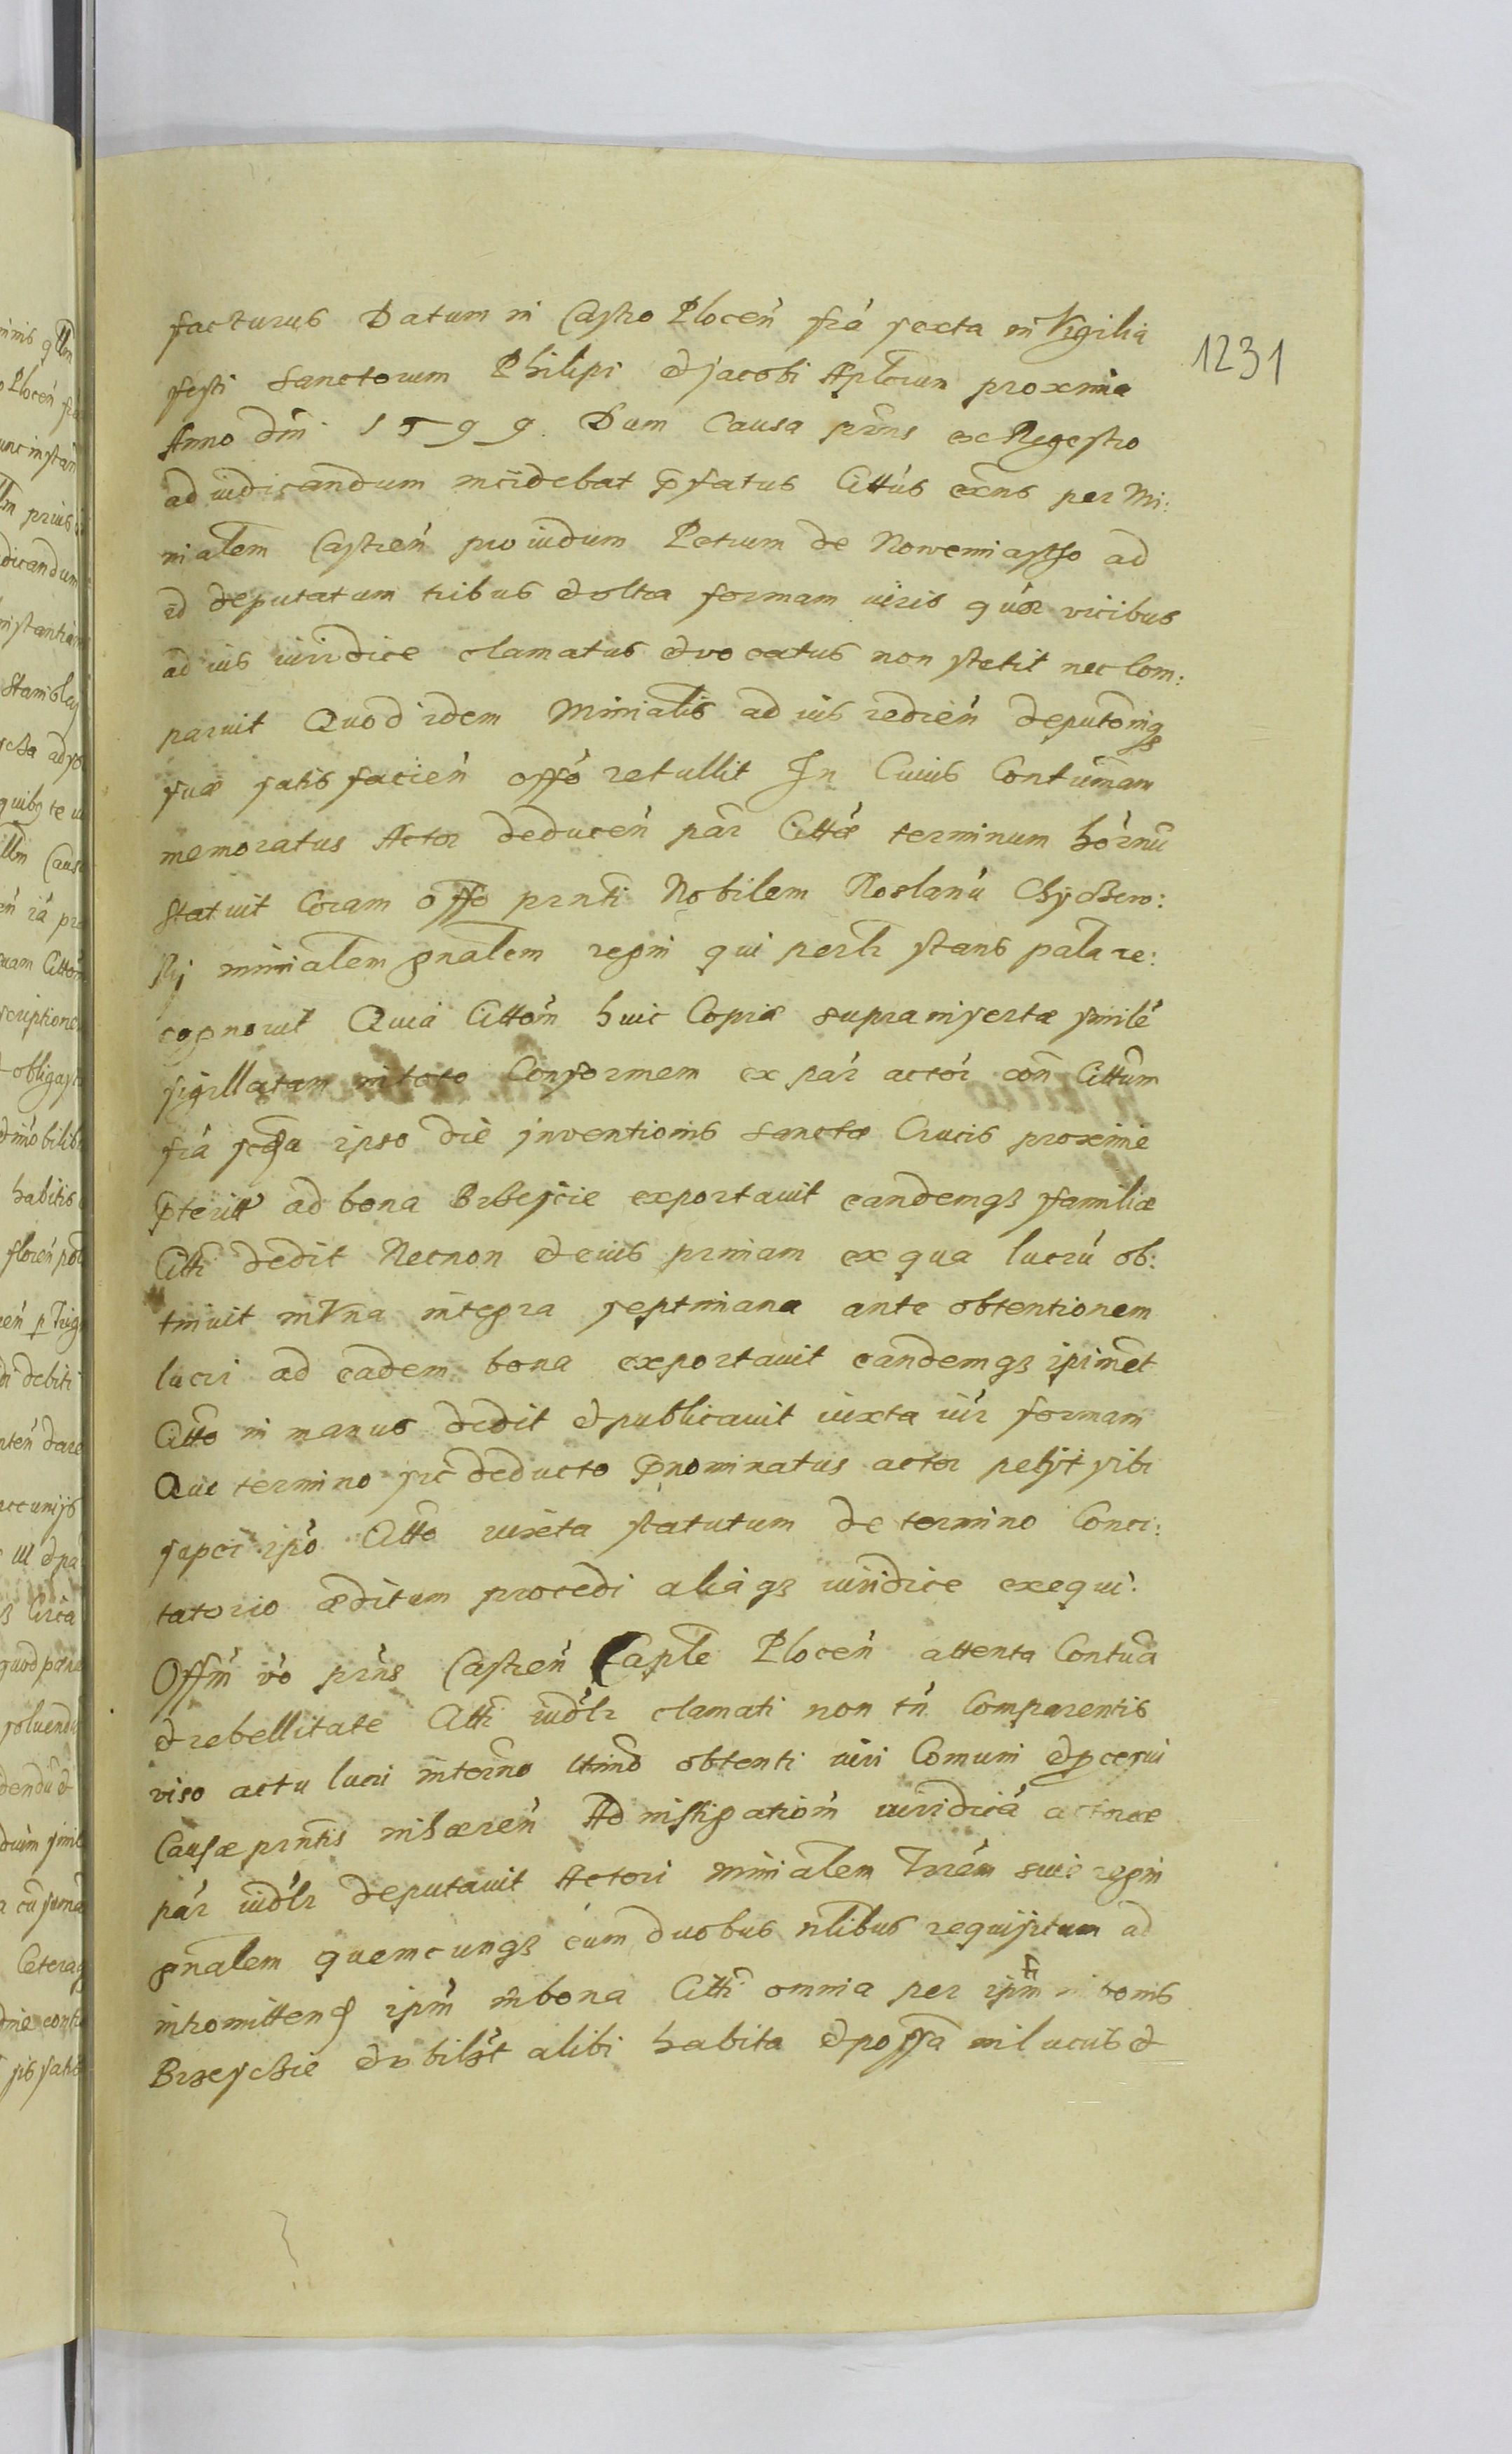 facturus Datum in Castro Plocen̄ fr̄a sexta in Vigilia
1231
festi Sanctorum Philipi et Jacobi Aplorum proxima
Anno dn̄i 1599. Dum Causa prn̄s ex Regestro
ad iudicandum incidebat p̄fatus Cittus exn̄s per Mi:
nialem Castren̄ prouidum Petrum de Nowemiasto ad
id deputatum tribus et ultra formam iuris quar vicibus
ad ius iuridice clamatus et vocatus non stetit nec Com:
paruit Quod idem Minialis ad ius redien̄ deputōniq3
suæ satis facien̄ offō retullit In Cuius Contumām
memoratus Actor deducen̄ par Cittæ terminum hōrnū
Statuit Coram offō prnti Nobilem Roslanū Chychew:
skj minialem gnalem regni qui perlr stans palā re:
cognovit Quia Cittōm huic Copiæ suprainsertæ similē
sigillatam in toto Conformem ex par actor con Cittum
fr̄a scda ipso die Inventionis Sanctæ Crucis proxime
p̄terita ad bona Brzescie exportauit eandemq3 familiæ
Citti dedit Necnon et eius primam ex qua lucrū ob:
tinuit in Vna integra septimana ante obtentionem
lucri ad eadem bona exportauit eandemq3 ipimet
Citto in manus dedit et publicauit iuxta iur formam
Quo termino sic deducto p̄nominatus actor petijt sibi
super ipō Citto iuxta statutum de termino Conci:
tatorio æditum procedi aliāq3 iuridice exequi.
Offm̄ vo prn̄s Castren̄ Caple Plocen̄ attenta Contuā
et rebellitate Citti iudlr clamati non tn̄ Comparentis
viso actu lucri in termo ultimo obtenti iuri Comuni et p̄cessui
Causæ prntis inhæren̄ Ad instigationm̄ iuridicā actoræ
par iudlr deputauit Actori minialem Trrem siue regni
gnalem quemcunq3 cum duobus nlibus requisitum ad
intromitten ipm̄ in bona Citti omnia per ipm̄ in bonis
Brzeschie et vbilt alibi habita et possa in lucris et